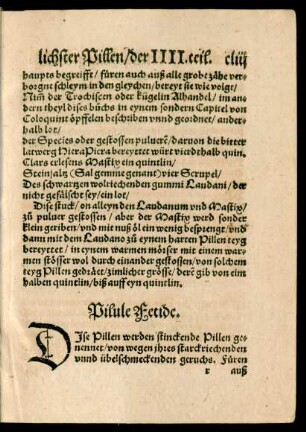 lichster Pillen/der IIII.teil. cliiij
haupts begreifft/ füren auch auß alle grobe zähe ver-
borgne schleym in den gleychen/bereyt sie wie volgt/
Nim̄ der Trochiscen oder kügelin Alhandel/ im an-
dern theyl dises bůchs in eynem sondern Capitel von
Coloquint öpffelen beschriben vnnd geordnet/ ander-
halb lot/
der Species oder gestossen puluers/ daruon die bitter
latwerg Hiera Picra bereyttet würt vierdthalb quin.
Clars erlesens Mastix ein quintlin/
Steinsaltz (Sal gemme genant) vier Scrupel/
Des schwartzen wolriechenden gummi Laudani/ der
nicht gefälscht sey/ ein lot/
Dise stuck/ on alleyn den Laudanum vnd Mastix/
zů puluer gestossen/ aber der Mastix werd sonder
klein geriben/ vnd mit nuß öl ein wenig besprengt/ vnd
dann mit dem Laudano zů eynem harten Pillen teyg
bereyttet/ in eynem warmen möser mit einem war-
men stösser wol durch einander gestossen/ von solchem
teyg Pillen gedräet/ zimlicher grösse/ derē gib von ein
halben quintlin/ biß auff eyn quintlin.
Pilule Fetide.
DIse Pillen werden stinckende Pillen ge-
nennet/ von wegen jhres starckriechenden
vnnd übelschmeckenden geruchs. Füren
x auß